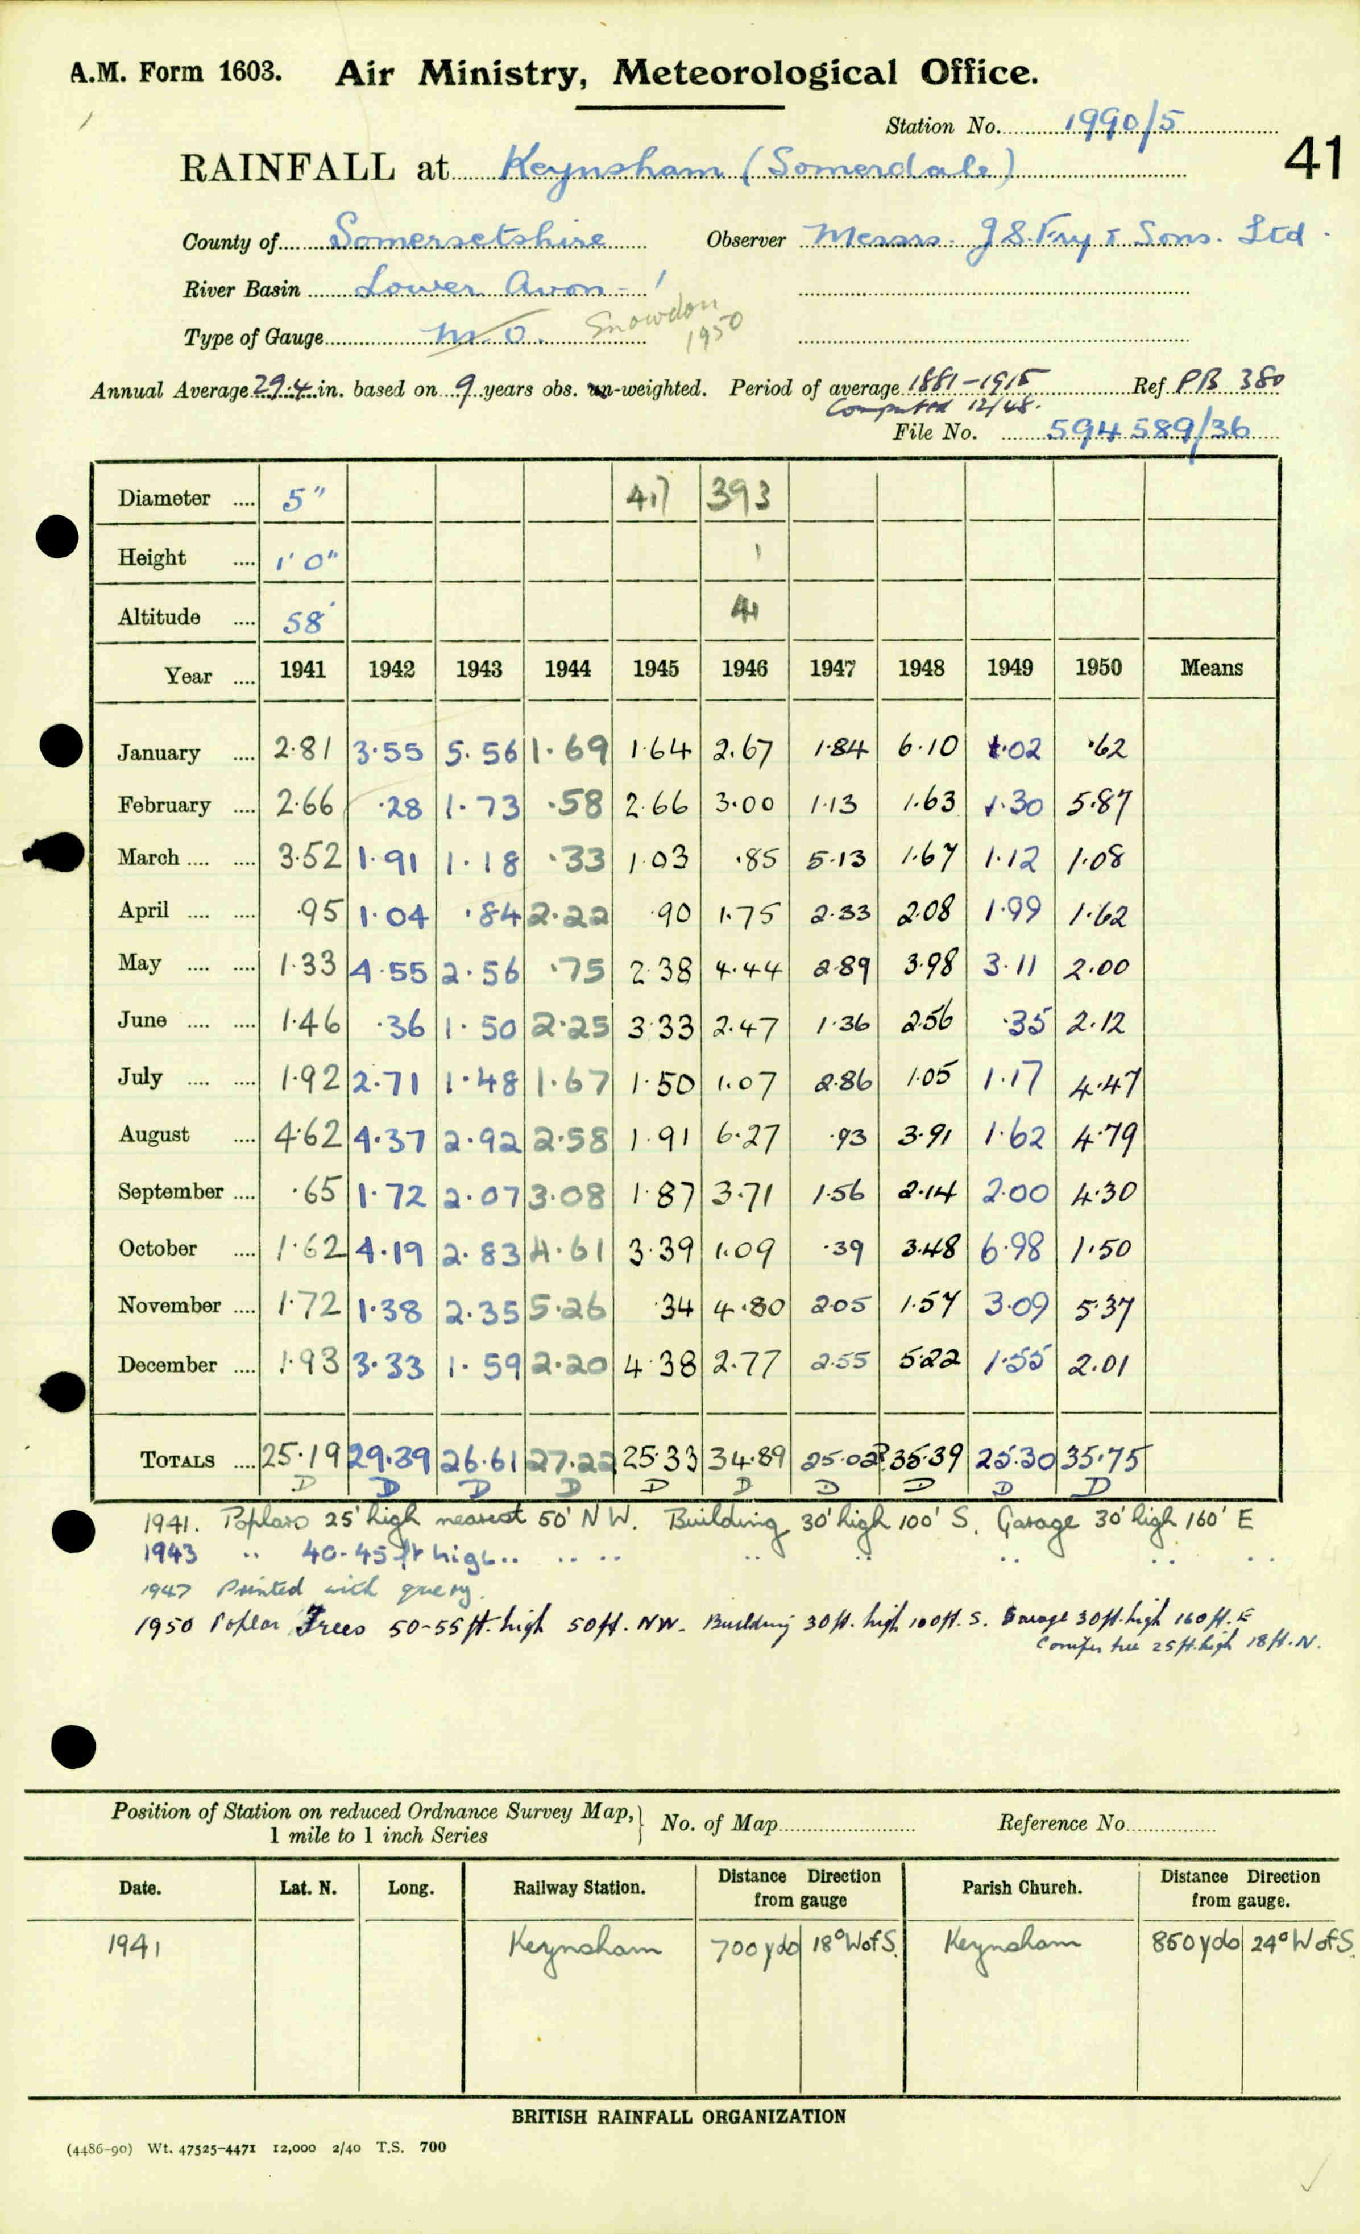 A.M. Form 1603. Air Ministry, Meteorological Office.
Station No. 1990/5
41
RAINFALL at Keynsham (Somerdale)
County of Somersetshire Observer Messrs. J S. Fry & Sons. Ltd.
River Basin Lower Avon - 1
Type of Gauge M.O. Snowdon 1950
Annual Average 29.4 in. based on 9 years obs. un-weighted. Period of average 1881-1915 Ref PB 380
Computed 12/48.
File No. 594589/36
Diameter .... 5" 417 393
Height .... 1' 0" 1
Altitude .... 58' 41
Year .... 1941 1942 1943 1944 1945 1946 1947 1948 1949 1950 Means
January .... 2.81 3.55 5.56 1.69 1.64 2.67 1.84 6.10 1.02 .62
February .... 2.66 .28 1.73 .58 2.66 3.00 1.13 1.63 1.30 5.87
March .... .... 3.52 1.91 1.18 .33 1.03 .85 5.13 1.67 1.12 1.08
April .... .... .95 1.04 .84 2.22 .90 1.75 2.33 2.08 1.99 1.62
May .... .... 1.33 4.55 2.56 .75 2.38 4.44 2.89 3.98 3.11 2.00
June .... .... 1.46 .36 1.50 2.25 3.33 2.47 1.36 2.56 .35 2.12
July .... .... 1.92 2.71 1.48 1.67 1.50 1.07 2.86 1.05 1.17 4.47
August .... 4.62 4.37 2.92 2.58 1.91 6.27 .93 3.91 1.62 4.79
September .... .65 1.72 2.07 3.08 1.87 3.71 1.56 2.14 2.00 4.30
October .... 1.62 4.19 2.83 4.61 3.39 1.09 .39 3.48 6.98 1.50
November .... 1.72 1.38 2.35 5.26 .34 4.80 2.05 1.57 3.09 5.37
December .... 1.93 3.33 1.59 2.20 4.38 2.77 2.55 5.22 1.55 2.01
TOTALS .... 25.19 29.39 26.61 27.22 25.33 34.89 25.02? 35.39 25.30 35.75
D D D D D D D D D D
1941. Poplars 25' high nearest 50' NW. Building 30' high 100' S. Garage 30' high 160' E
1943 " 40-45 ft high " " " " " " " "
1947 Printed with query.
1950 Poplar Trees 50-55 ft. high 50 ft. NW. Building 30 ft. high 100 ft. S. Garage 30 ft. high 160 ft. E
Conifer tree 25 ft. high 18 ft. N.
Position of Station on reduced Ordnance Survey Map, 1 mile to 1 inch Series } No. of Map Reference No.
Date. Lat. N. Long. Railway Station. Distance Direction from gauge Parish Church. Distance Direction from gauge.
1941 Keynsham 700 yds 18° W of S. Keynsham 850 yds 24° W of S.
BRITISH RAINFALL ORGANIZATION
(4486-90) Wt. 47525-4471 12,000 2/40 T.S. 700